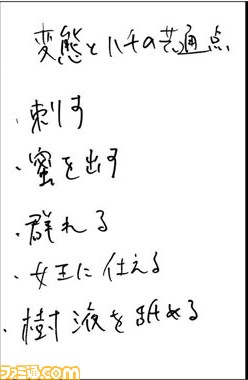 変態とハチの共通点
・刺す
・蜜を出す
・群れる
・女王に仕える
・樹液を舐める
ファミ通.com